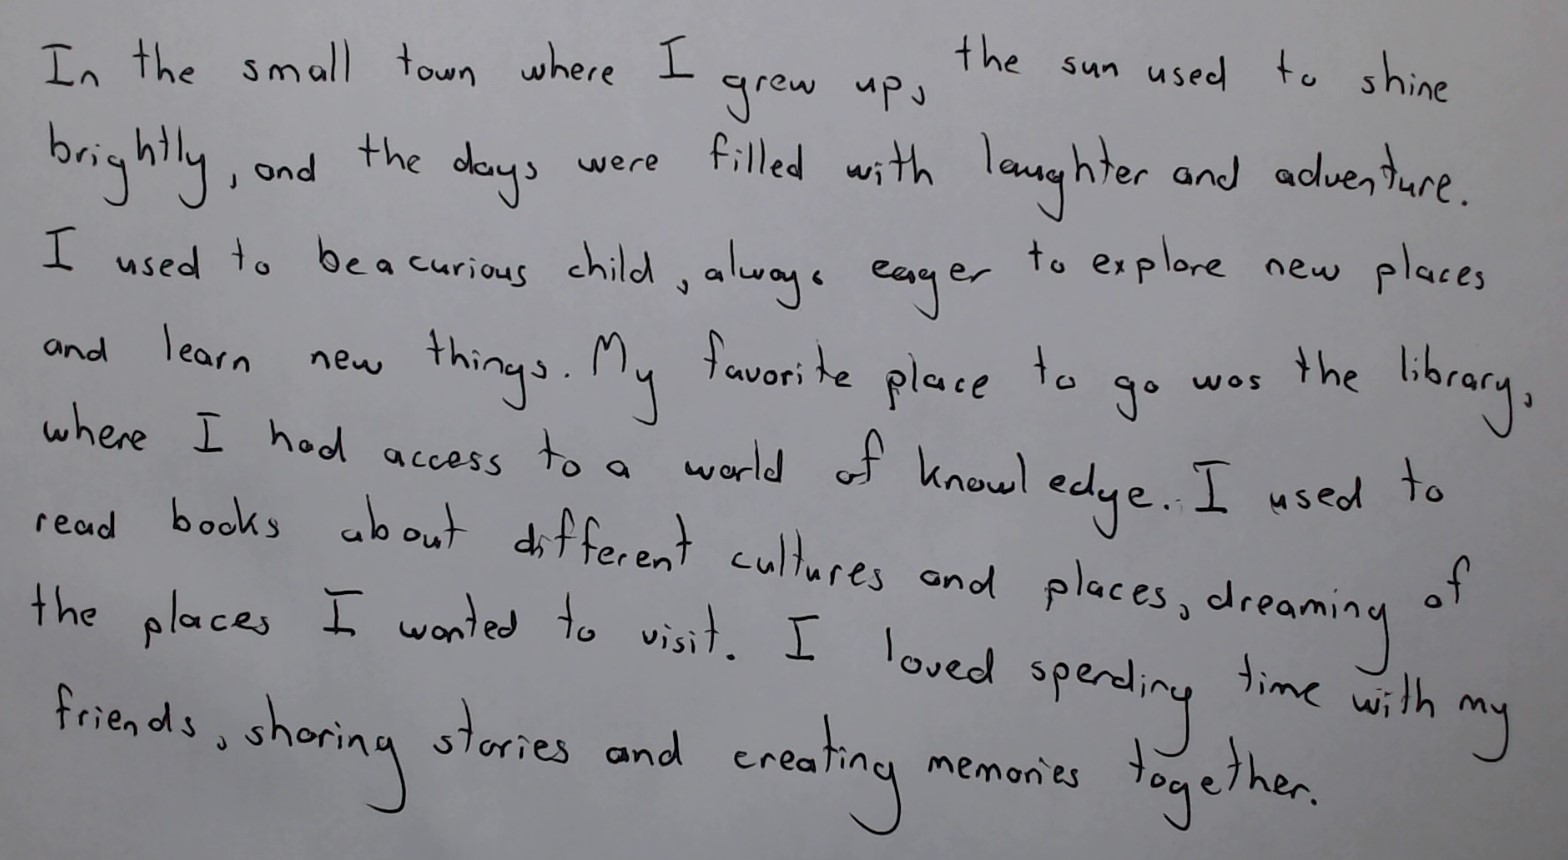 In the small town where I grew up, the sun used to shine
brightly, and the days were filled with laughter and adventure.
I used to be a curious child, always eager to explore new places
and learn new things. My favorite place to go was the library,
where I had access to a world of knowledge. I used to
read books about different cultures and places, dreaming of
the places I wanted to visit. I loved spending time with my
friends, sharing stories and creating memories together.